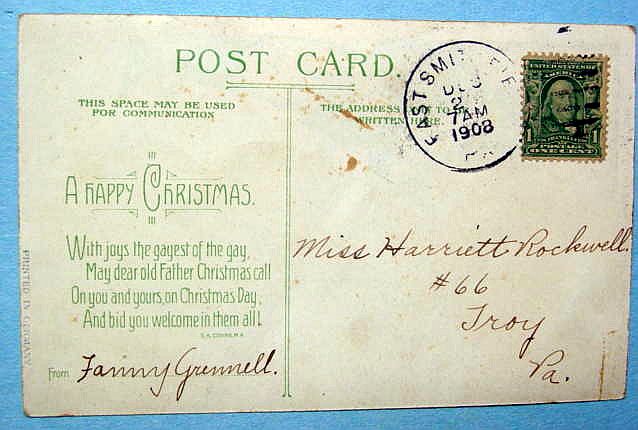 POST CARD.
THIS SPACE MAY BE USED
FOR COMMUNICATION
THE ADDRESS TO BE
WRITTEN HERE.
EAST SMITHFIE
DEC
2
7AM
1908
PA
UNITED STATES OF
AMERICA
FRANKLIN
POSTAGE
ONE CENT
A HAPPY CHRISTMAS.
With joys the gayest of the gay,
May dear old Father Christmas call
On you and yours, on Christmas Day,
And bid you welcome in them all!
From Fanny Grennell.
Miss Harriett Rockwell.
#66
Troy
Pa.
PRINTED IN GERMANY